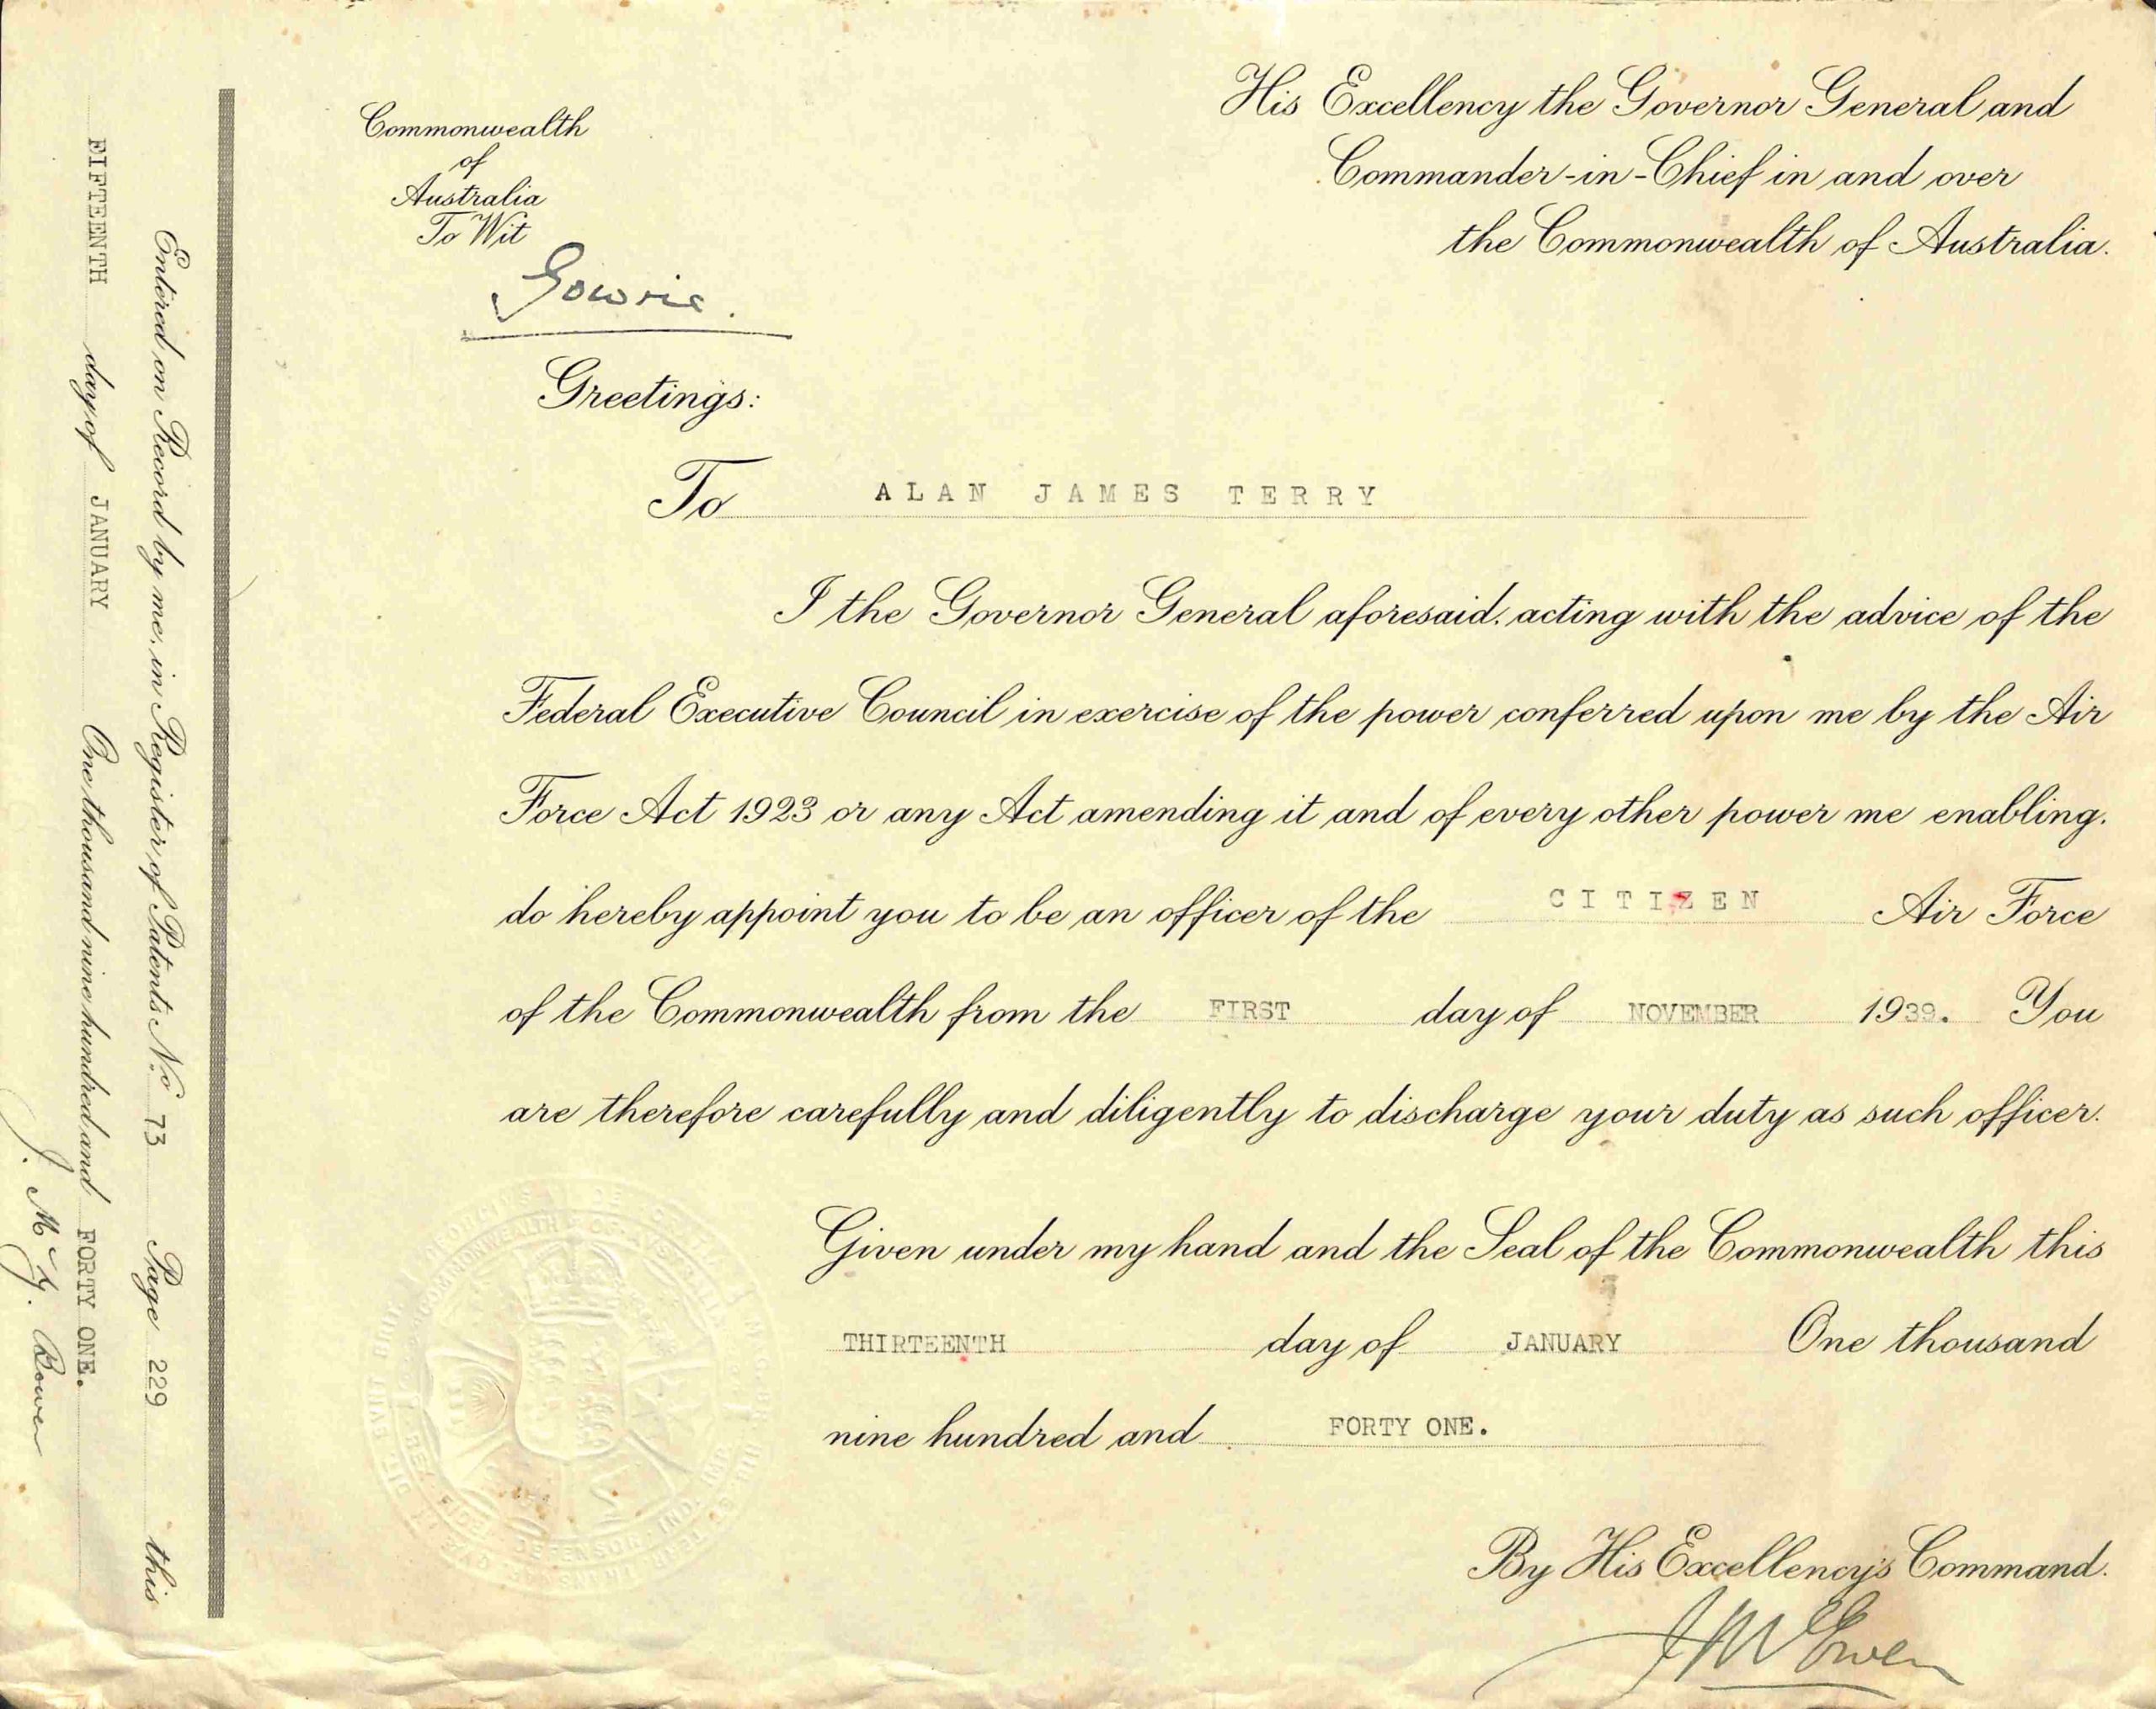 Commonwealth
of
Australia
To Wit
Gowrie.
His Excellency the Governor General and
Commander-in-Chief in and over
the Commonwealth of Australia.
Greetings:
To ALAN JAMES TERRY
I the Governor General aforesaid, acting with the advice of the
Federal Executive Council in exercise of the power conferred upon me by the Air
Force Act 1923 or any Act amending it and of every other power me enabling,
do hereby appoint you to be an officer of the CITIZEN Air Force
of the Commonwealth from the FIRST day of NOVEMBER 1939. You
are therefore carefully and diligently to discharge your duty as such officer.
Given under my hand and the Seal of the Commonwealth this
THIRTEENTH day of JANUARY One thousand
nine hundred and FORTY ONE.
By His Excellency's Command.
J McEwen
Entered on Record by me, in Register of Patents No 73 Page 229 this
FIFTEENTH day of JANUARY One thousand nine hundred and FORTY ONE.